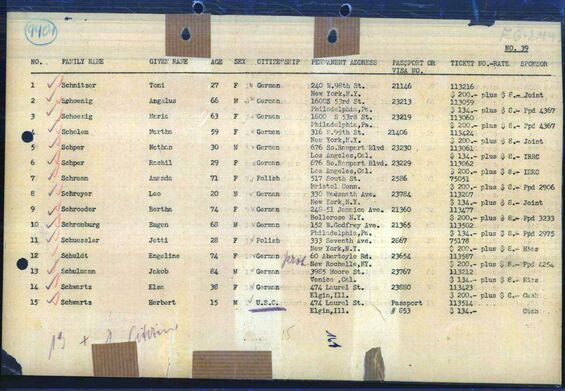 9401
NO. 39
NO. FAMILY NAME GIVEN NAME AGE SEX CITIZENSHIP PERMANENT ADDRESS PASSPORT OR TICKET NO.-RATE SPONSOR
VISA NO.
1 Schnitzer Toni 27 F German 240 W.98th St. 21146 113216
New York,N.Y. $ 200.- plus $ 8.- Joint
2 Schoenig Angelus 66 M German 1600S 53rd St. 23213 113059
Philadelphia,Pa. $ 134.- plus $ 8.- Ppd 4367
3 Schoenig Marie 63 F German 1600 S 53rd St 23219 113060
Philadelphia,Pa. $ 134.- plus $ 8.- Ppd 4367
4 Scholem Martha 59 F German 316 W.95th St. 21406 113424
New York,N.Y. $ 200.- plus $ 8.- Joint
5 Schper Nathan 30 M German 676 So.Rampart Blvd 23230 113061
Los Angeles,Cal. $ 134.- plus $ 8.- IRRC
6 Schper Rachil 29 F German 676 So.Rampart Blvd. 23229 113062
Los Angeles,Cal. $ 134.- plus $ 8.- IRRC
7 Schramm Amanda 71 F Polish 517 South St. 2586 75051
Bristol Conn. $ 200.- plus $ 8.- Ppd 2906
8 Schreyer Leo 20 M German 330 Wadsworth Ave 23784 113207
New York,N.Y. $ 134.- plus $ 8.- Joint
9 Schroeder Bertha 74 F German 248-51 Jamaica Ave. 21360 113477
Bellerose N.Y. $ 200.- plus $ 8.- Ppd 3233
10 Schromburg Eugen 68 M German 152 W.Godfrey Ave. 21365 113502
Philadelphia,Pa. $ 134.- plus $ 8.- Ppd 2975
11 Schuessler Jetti 28 F Polish 333 Seventh Ave. 2667 75178
New York,N.Y. $ 200.- plus $ 8.- Hias
12 Schuldt Engeline 74 F German 60 Aberfoyle Rd. 23654 113587
New Rochelle,NY $ 200.- plus $ 8.- Ppd 4254
13 Schulmann Jakob 84 M German 3985 Moore St. 23767 113212
Venice ,Cal. $ 134.- plus $ 8.- Hias
14 Schwartz Elsa 38 F German 474 Laurel St. 23880 113423
Elgin,Ill. $ 200.- plus $ 8.- Cash
15 Schwartz Herbert 15 M U.S.C. 474 Laurel St. Passport 113514
Elgin,Ill. # 853 $ 134.- Cash